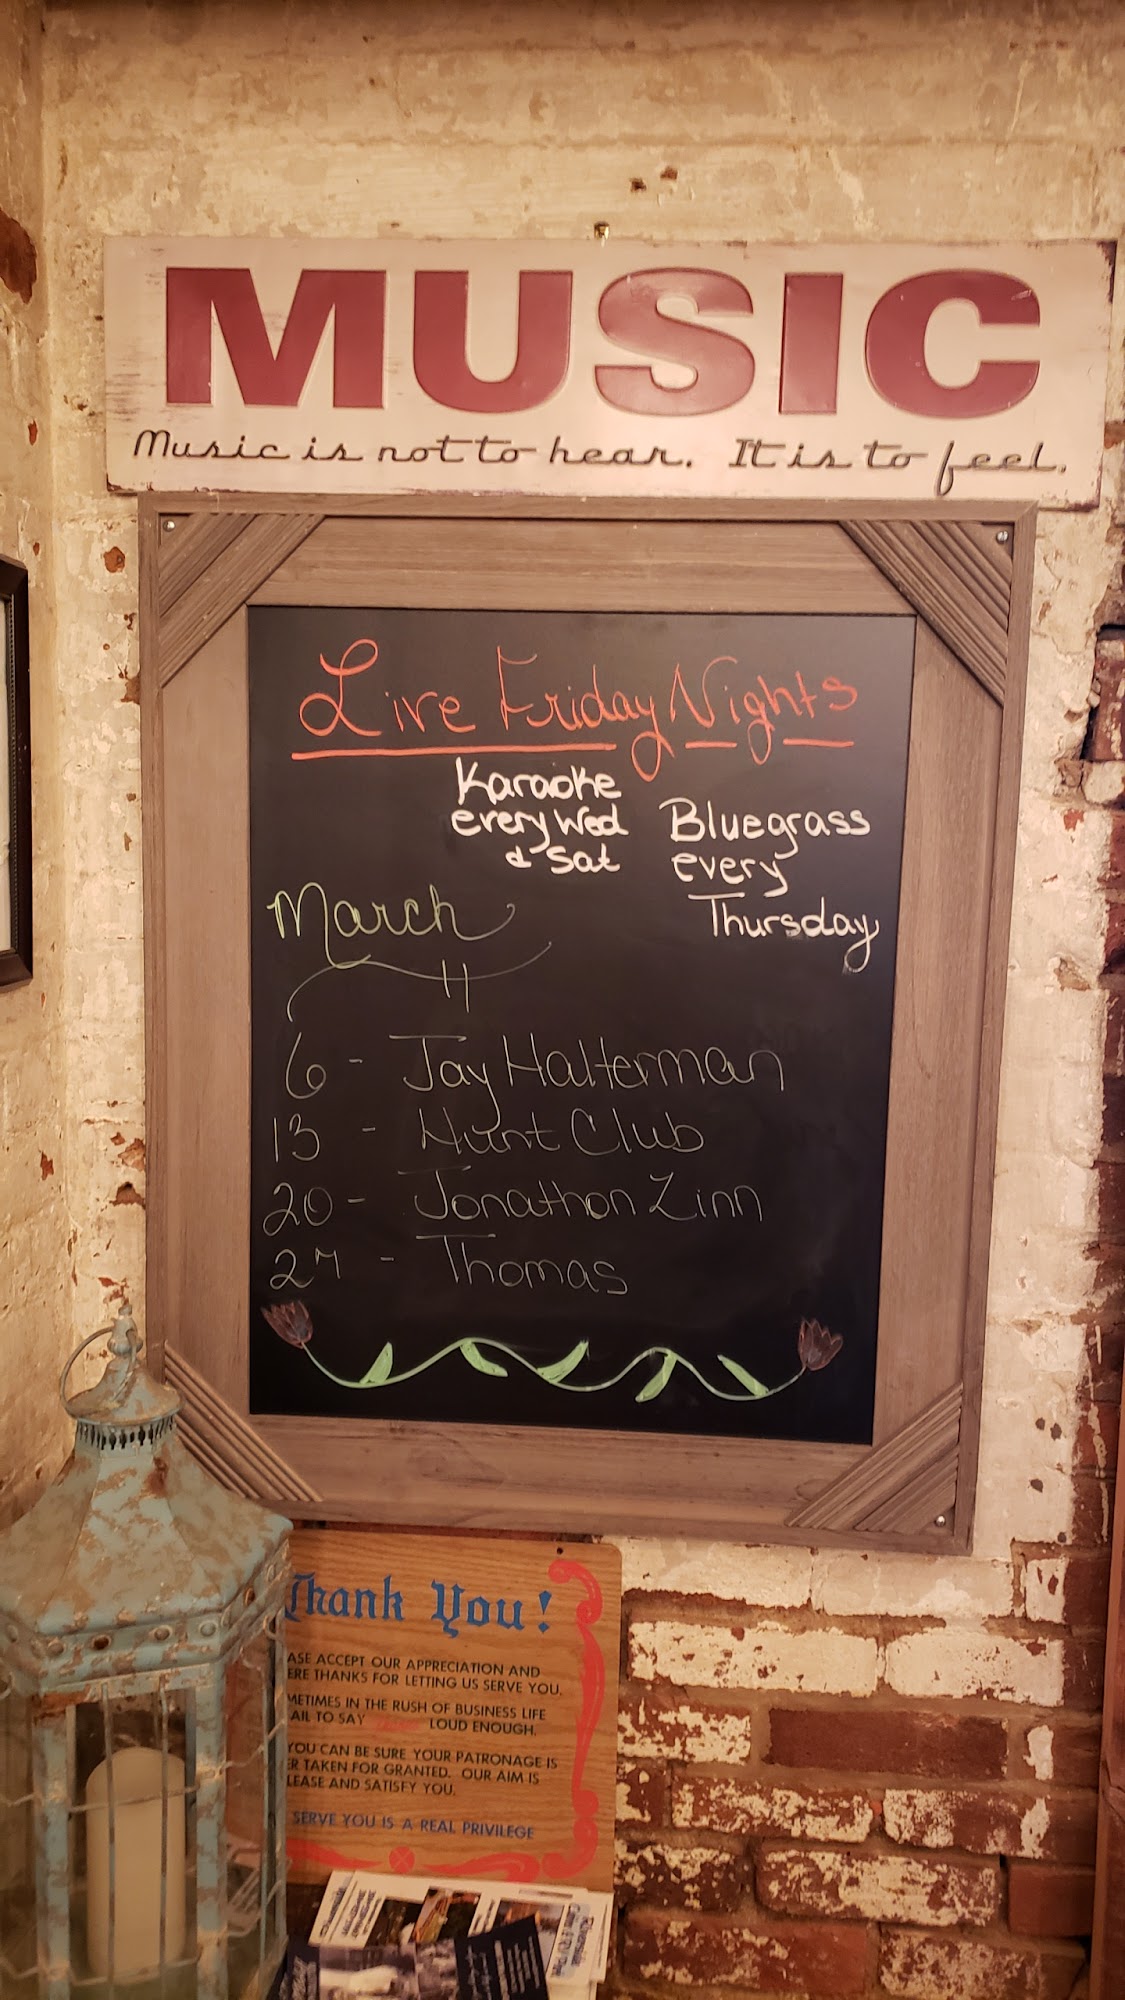 MUSIC
Music is not to hear. It is to feel.
Live Friday Nights
Karaoke
every Wed
& Sat
Bluegrass
every
Thursday
March
6 - Jay Halterman
13 - Hunt Club
20 - Jonathon Zinn
27 - Thomas
Thank You!
ASE ACCEPT OUR APPRECIATION AND
ERE THANKS FOR LETTING US SERVE YOU.
METIMES IN THE RUSH OF BUSINESS LIFE
AIL TO SAY LOUD ENOUGH,
YOU CAN BE SURE YOUR PATRONAGE IS
ER TAKEN FOR GRANTED. OUR AIM IS
LEASE AND SATISFY YOU.
SERVE YOU IS A REAL PRIVILEGE